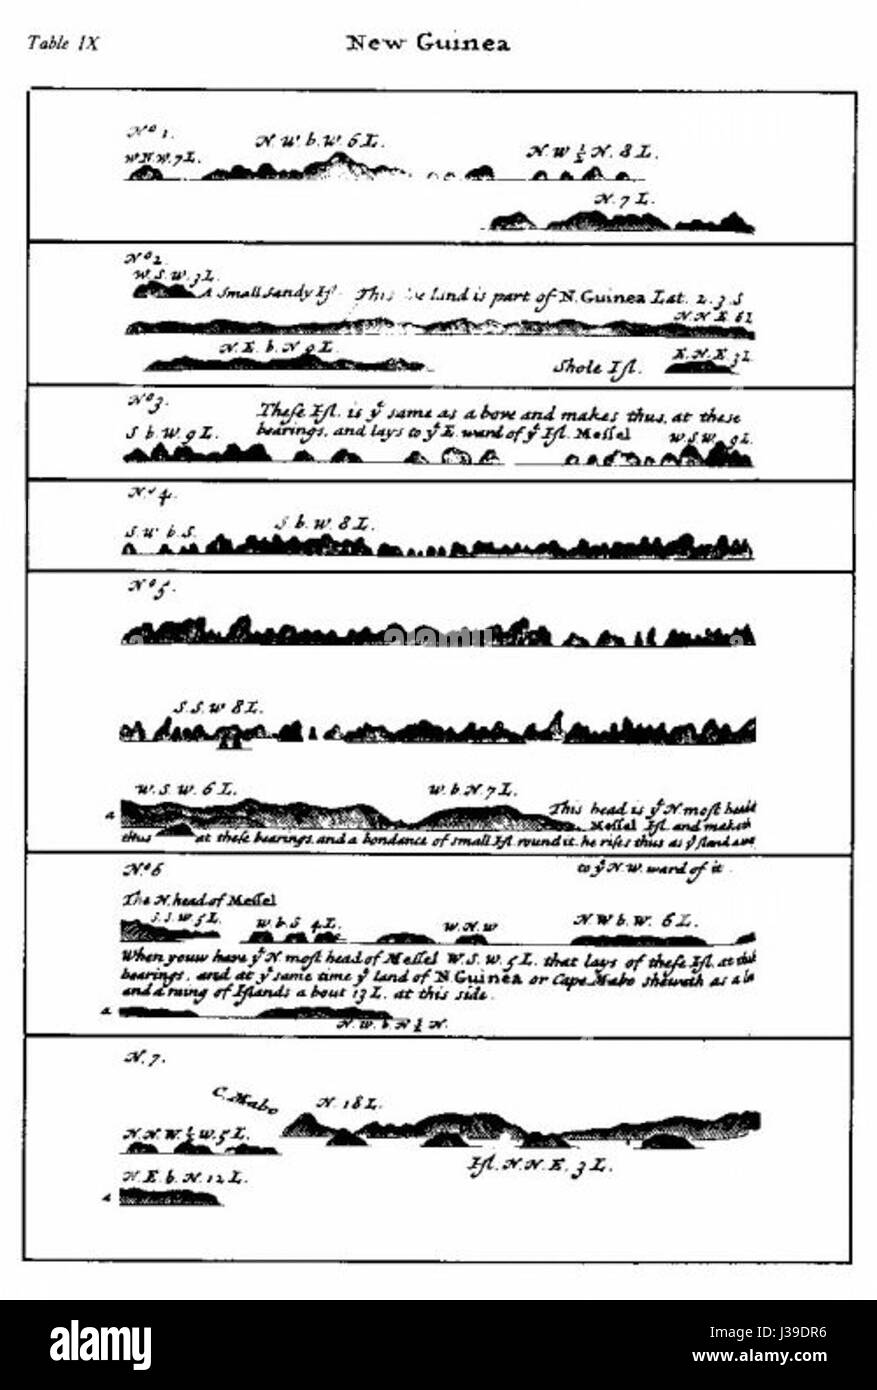 Table IX
New Guinea
Nº 1.
N. W. b. W. 6 L.
W. N. W. 7 L.
N. W ½ N. 8 L.
N. 7 L.
Nº 2
W. S. W. 3 L.
A Small Sandy Iſl. This land is part of N. Guinea Lat. 2. 3. S
N. N. E. 6 L
N. E. b. N 9 L.
Shole Iſl.
E. N. E. 3 L.
Nº 3.
Theſe Iſl. is yᵉ same as above and makes thus, at these
S b. W. 9 L.
bearings, and lays to yᵉ E. ward of yᵉ Iſl. Meſſel
W. S. W. 9 L.
Nº 4.
S. W b. S.
S. b. W. 8 L.
Nº 5.
S. S. W 8 L.
W. S. W. 6 L.
W. b. N. 7 L.
This head is yᵉ N. moſt head
a
Meſſel Iſl. and maketh
thus at theſe bearings, and a bondance of small Iſl. round it, he riſes thus as yᵉ ſland
Nº 6
to yᵉ N. W. ward of it
The N. head of Meſſel
S. S. W. 5 L.
W. b. S 4 L.
W. N. W
N. W b. W. 6 L.
When youw have yᵉ N. moſt head of Meſſel W. S. W. 5 L. that lays of theſe Iſl. at
bearings, and at yᵉ same time yᵉ land of N. Guinea or Cape Mabo sheweth as a
and a raing of Iſlands a bout 13 L. at this side.
a
N. W. b. N ½ N.
N. 7.
C. Mabo
N. 18 L.
N. N. W. ½ W. 5 L.
Iſl. N. N. E. 3 L.
N. E. b. N. 12 L.
a
alamy
alamy
Image ID: J39DR6
www.alamy.com